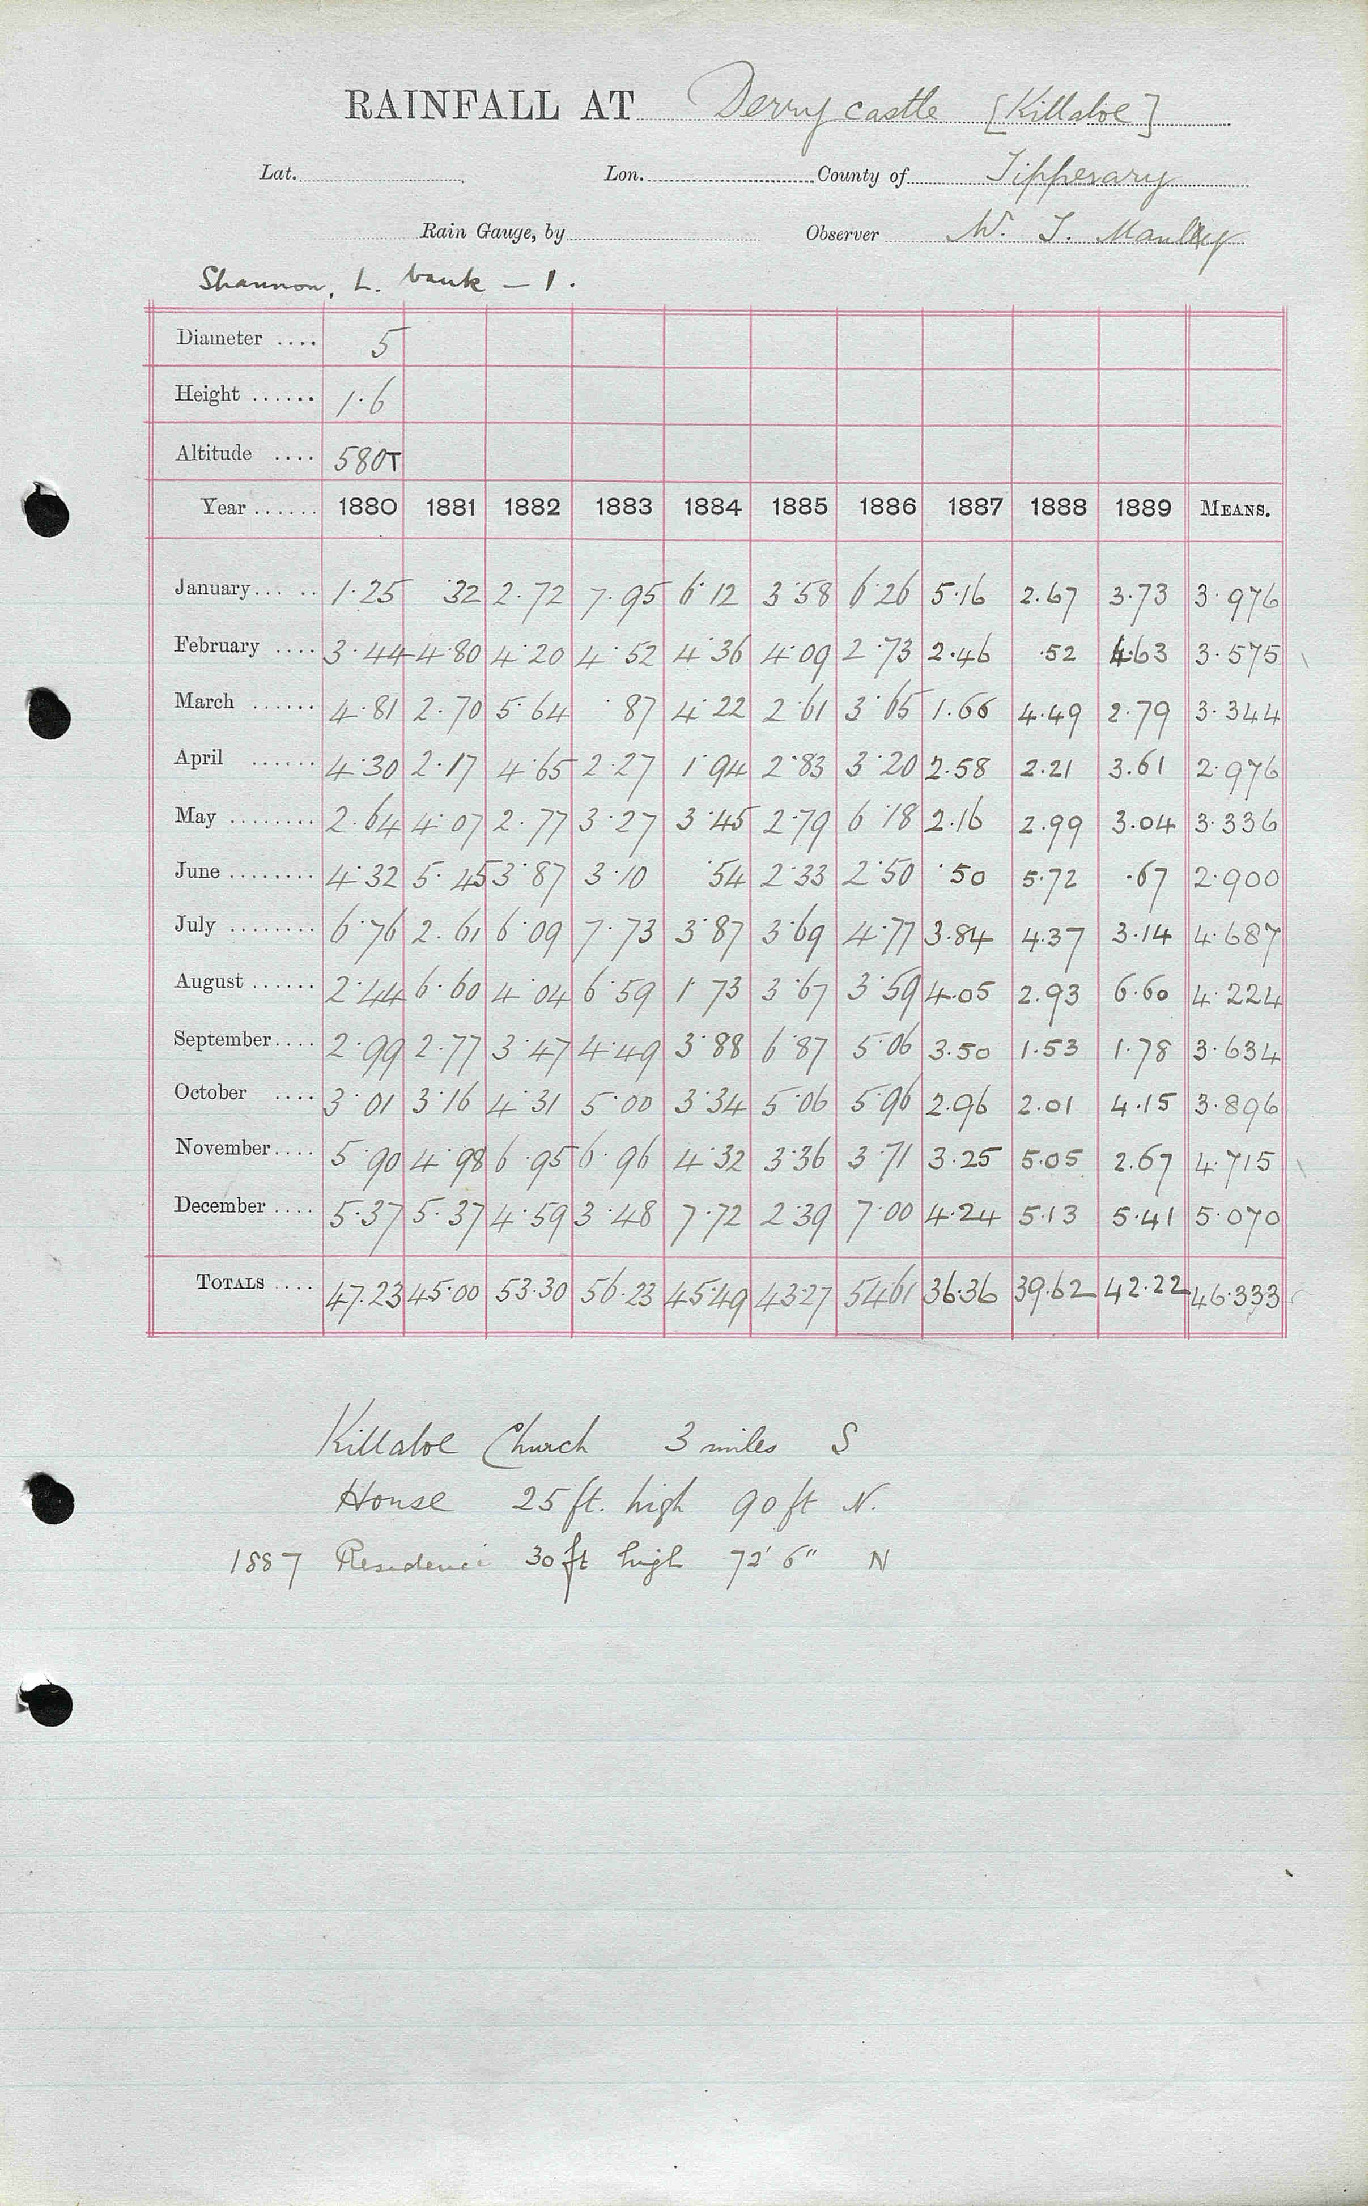 RAINFALL AT Derrycastle [Killaloe]
Lat. Lon. County of Tipperary
Rain Gauge, by Observer W. T. Manley
Shannon, L. bank — 1.
Diameter .... 5
Height ...... 1.6
Altitude .... 580T
Year ...... 1880 1881 1882 1883 1884 1885 1886 1887 1888 1889 MEANS.
January... .. 1.25 .32 2.72 7.95 6.12 3.58 6.26 5.16 2.67 3.73 3.976
February .... 3.44 4.80 4.20 4.52 4.36 4.09 2.73 2.46 .52 4.63 3.575
March ...... 4.81 2.70 5.64 .87 4.22 2.61 3.65 1.66 4.49 2.79 3.344
April ...... 4.30 2.17 4.65 2.27 1.94 2.83 3.20 2.58 2.21 3.61 2.976
May ........ 2.64 4.07 2.77 3.27 3.45 2.79 6.18 2.16 2.99 3.04 3.336
June ........ 4.32 5.45 3.87 3.10 .54 2.33 2.50 .50 5.72 .67 2.900
July ........ 6.76 2.61 6.09 7.73 3.87 3.69 4.77 3.84 4.37 3.14 4.687
August ...... 2.44 6.60 4.04 6.59 1.73 3.67 3.59 4.05 2.93 6.60 4.224
September.... 2.99 2.77 3.47 4.49 3.88 6.87 5.06 3.50 1.53 1.78 3.634
October .... 3.01 3.16 4.31 5.00 3.34 5.06 5.96 2.96 2.01 4.15 3.896
November.... 5.90 4.98 6.95 6.96 4.32 3.36 3.71 3.25 5.05 2.67 4.715
December .... 5.37 5.37 4.59 3.48 7.72 2.39 7.00 4.24 5.13 5.41 5.070
TOTALS .... 47.23 45.00 53.30 56.23 45.49 43.27 54.61 36.36 39.62 42.22 46.333
Killaloe Church 3 miles S
House 25 ft. high 90 ft N.
1887 Residence 30 ft high 72' 6" N